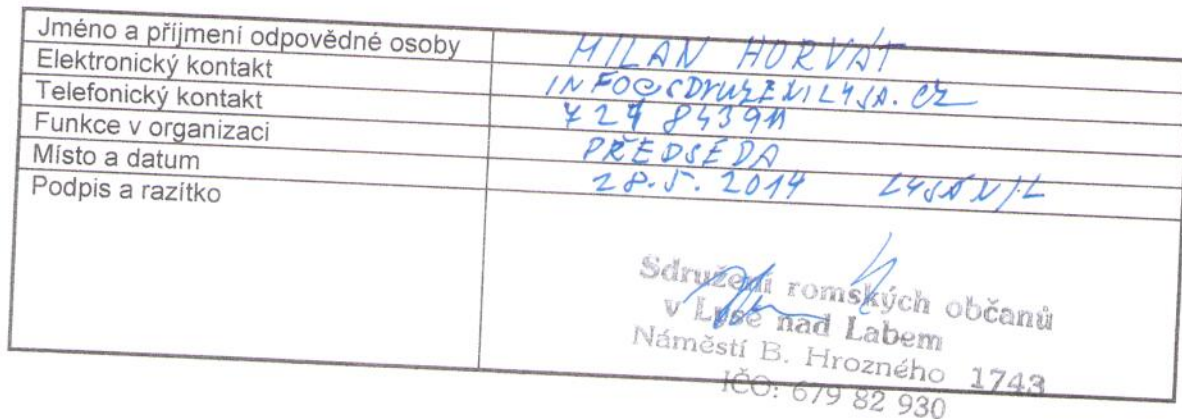 Jméno a příjmení odpovědné osoby MILAN HORVÁT
Elektronický kontakt INFO@SDRUZENILYSA.CZ
Telefonický kontakt 724 843911
Funkce v organizaci PŘEDSEDA
Místo a datum 28.5. 2014 LYSÁ N/L
Podpis a razítko
Sdružení romských občanů
v Lysé nad Labem
Náměstí B. Hrozného 1743
IČO: 679 82 930